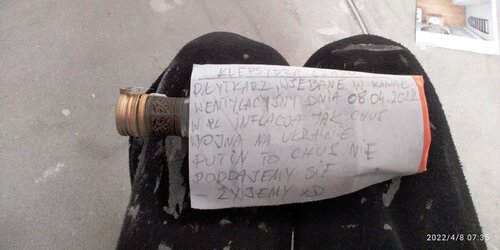 KLEPSYDRA CZASU
PŁYTKARZ, WJEBANE W KANAŁ
WENTYLACYJNY DNIA 08.04.2022
W PL INFLACJA JAK CHUJ
WOJNA NA UKRAINIE
PUTIN TO CHUJ NIE
PODDAJEMY SIĘ
ŻYJEMY xD
2022/4/8 07:35